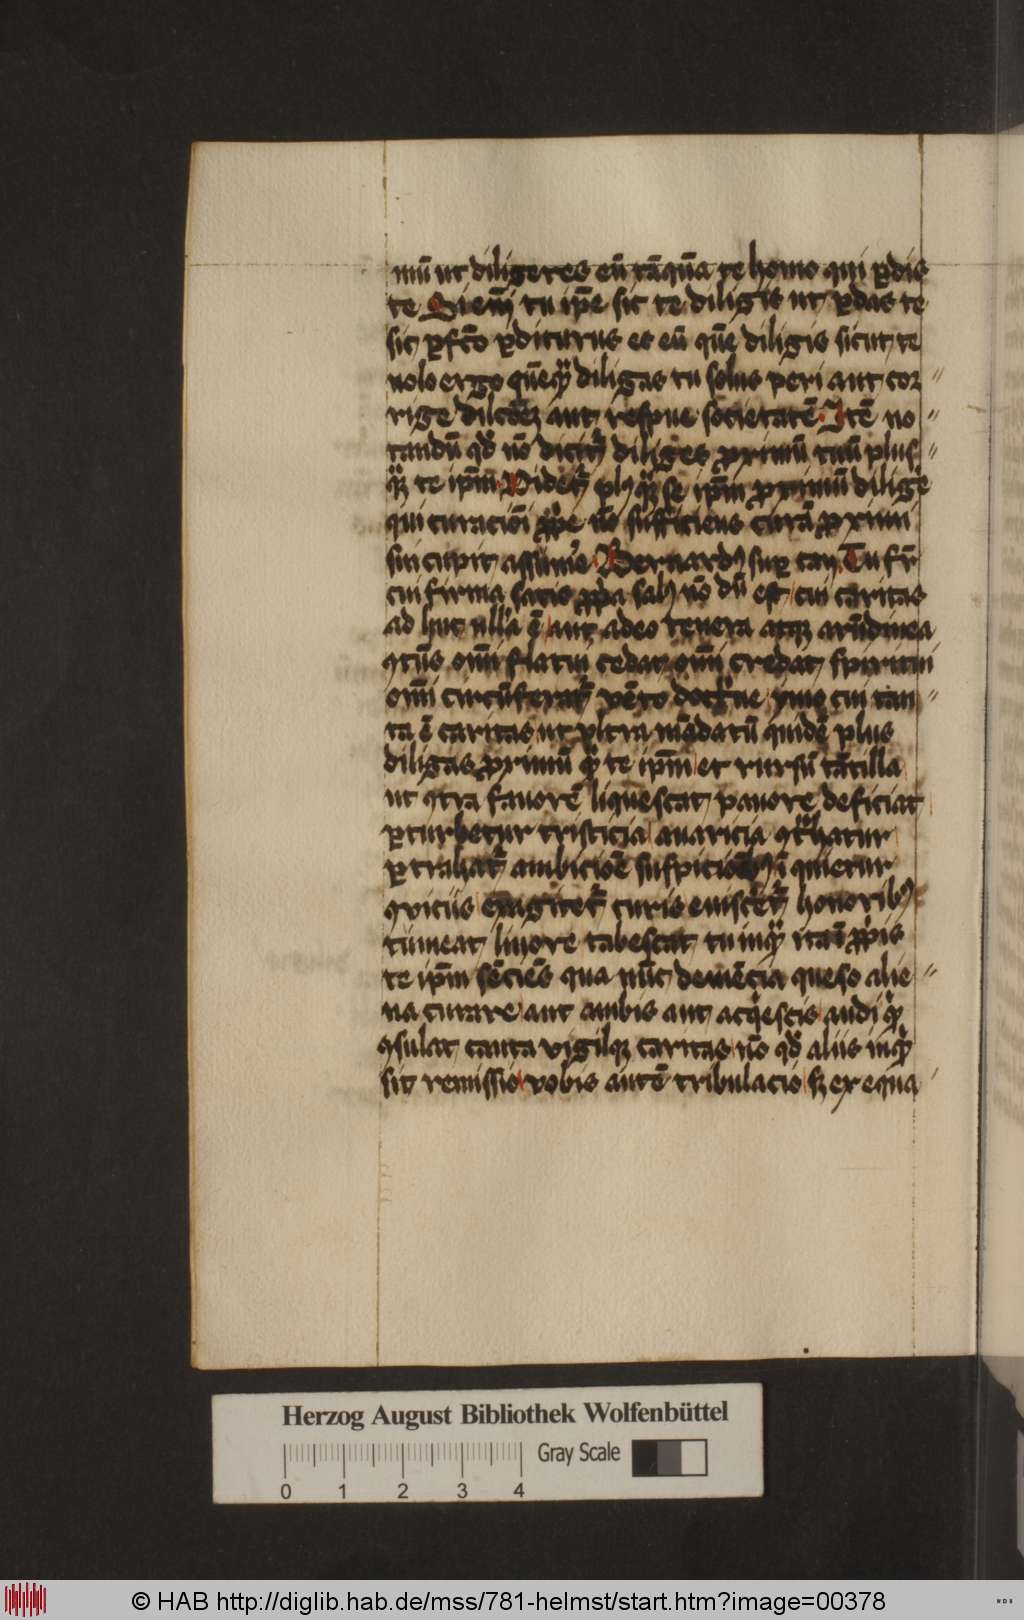 mū ut diligeres eū tāquā te homo qui ꝑdis
te Si em̄ tu ip̄e sic te diligis ut ꝑdas te
sic ꝑfc̄o ꝑditurus es eū quē diligis sicut te
nolo ergo quēqͣ diligas tu solus peri aut cor
rige dilc̄oēꝫ aut respue societatē Itē no
tandū qd̄ nō dicitͬ diliges ꝓximū tuū plus
qͣꝫ te ip̄m Videtͬ plꝰ qͣꝫ se ip̄m ꝓximū diligͤe
qui curacioī ꝓp̄e nō sufficiens curā ꝓximi
sui cupit assumͤe Bernardꝰ suꝑ can Tu fr̄
cui firma satis ꝓp̄a salꝰ nō dū est cui caritas
ad huc nulla ē aut adeo tenera atqꝫ arūdinea
ꝗtūs om̄i flatui cedat om̄i credat spiritui
om̄i circūferatͬ vēto doctͥne ymo cui tan
ta ē caritas ut vltra mādatū quidē plus
diligas ꝓximū qͣ te ip̄m et rursū tātilla
ut ꝯtra fauorē liquescat pauore deficiat
ꝑturbetur tristicia auaricia ꝯtͣhatur
ꝑtrahatͬ ambicioē suspicioībꝰ ī quietur
ꝯuiciis exagitetͬ curis euiscͤetͬ honoribꝰ
tumeat liuore tabescat tu inqͣ ita ī ꝓp̄is
te ip̄m sēciēs qua nūc demēcia queso alie
na curare aut ambis aut acqͥescis audi qͥ
ꝯsulat cauta vigilqꝫ caritas nō qd̄ aliis inqͥ
sit remissio vobis autē tribulacio sꝫ ex equa
Herzog August Bibliothek Wolfenbüttel
Gray Scale
0 1 2 3 4
© HAB http://diglib.hab.de/mss/781-helmst/start.htm?image=00378